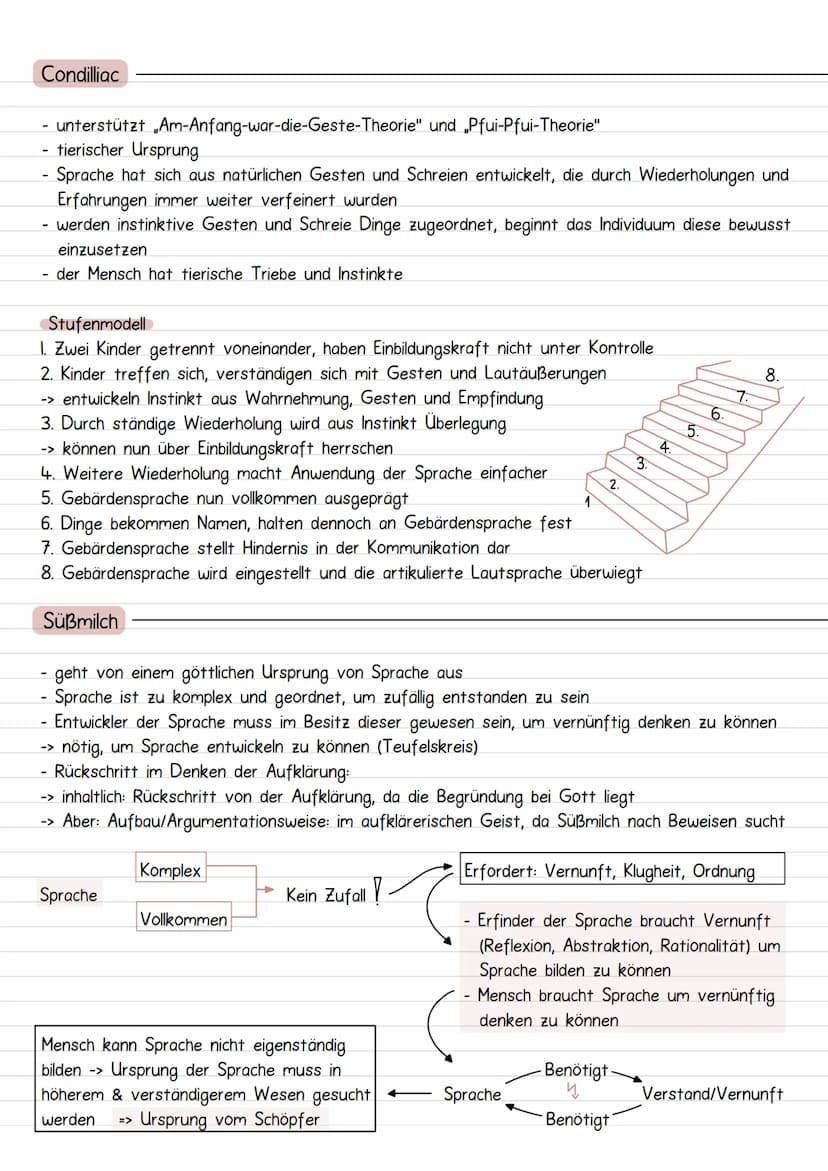 Condilliac
- unterstützt „Am-Anfang-war-die-Geste-Theorie" und „Pfui-Pfui-Theorie"
- tierischer Ursprung
- Sprache hat sich aus natürlichen Gesten und Schreien entwickelt, die durch Wiederholungen und
Erfahrungen immer weiter verfeinert wurden
- werden instinktive Gesten und Schreie Dinge zugeordnet, beginnt das Individuum diese bewusst
einzusetzen
- der Mensch hat tierische Triebe und Instinkte
Stufenmodell
1. Zwei Kinder getrennt voneinander, haben Einbildungskraft nicht unter Kontrolle
2. Kinder treffen sich, verständigen sich mit Gesten und Lautäußerungen
-> entwickeln Instinkt aus Wahrnehmung, Gesten und Empfindung
3. Durch ständige Wiederholung wird aus Instinkt Überlegung
-> können nun über Einbildungskraft herrschen
4. Weitere Wiederholung macht Anwendung der Sprache einfacher
5. Gebärdensprache nun vollkommen ausgeprägt
6. Dinge bekommen Namen, halten dennoch an Gebärdensprache fest
7. Gebärdensprache stellt Hindernis in der Kommunikation dar
8. Gebärdensprache wird eingestellt und die artikulierte Lautsprache überwiegt
1
2.
3.
4.
5.
6.
7.
8.
Süßmilch
- geht von einem göttlichen Ursprung von Sprache aus
- Sprache ist zu komplex und geordnet, um zufällig entstanden zu sein
- Entwickler der Sprache muss im Besitz dieser gewesen sein, um vernünftig denken zu können
-> nötig, um Sprache entwickeln zu können (Teufelskreis)
- Rückschritt im Denken der Aufklärung:
-> inhaltlich: Rückschritt von der Aufklärung, da die Begründung bei Gott liegt
-> Aber: Aufbau/Argumentationsweise: im aufklärerischen Geist, da Süßmilch nach Beweisen sucht
Sprache
Komplex
Vollkommen
Kein Zufall !
Erfordert: Vernunft, Klugheit, Ordnung
- Erfinder der Sprache braucht Vernunft
(Reflexion, Abstraktion, Rationalität) um
Sprache bilden zu können
- Mensch braucht Sprache um vernünftig
denken zu können
Sprache
Benötigt
Verstand/Vernunft
Benötigt
Mensch kann Sprache nicht eigenständig
bilden -> Ursprung der Sprache muss in
höherem & verständigerem Wesen gesucht
werden => Ursprung vom Schöpfer